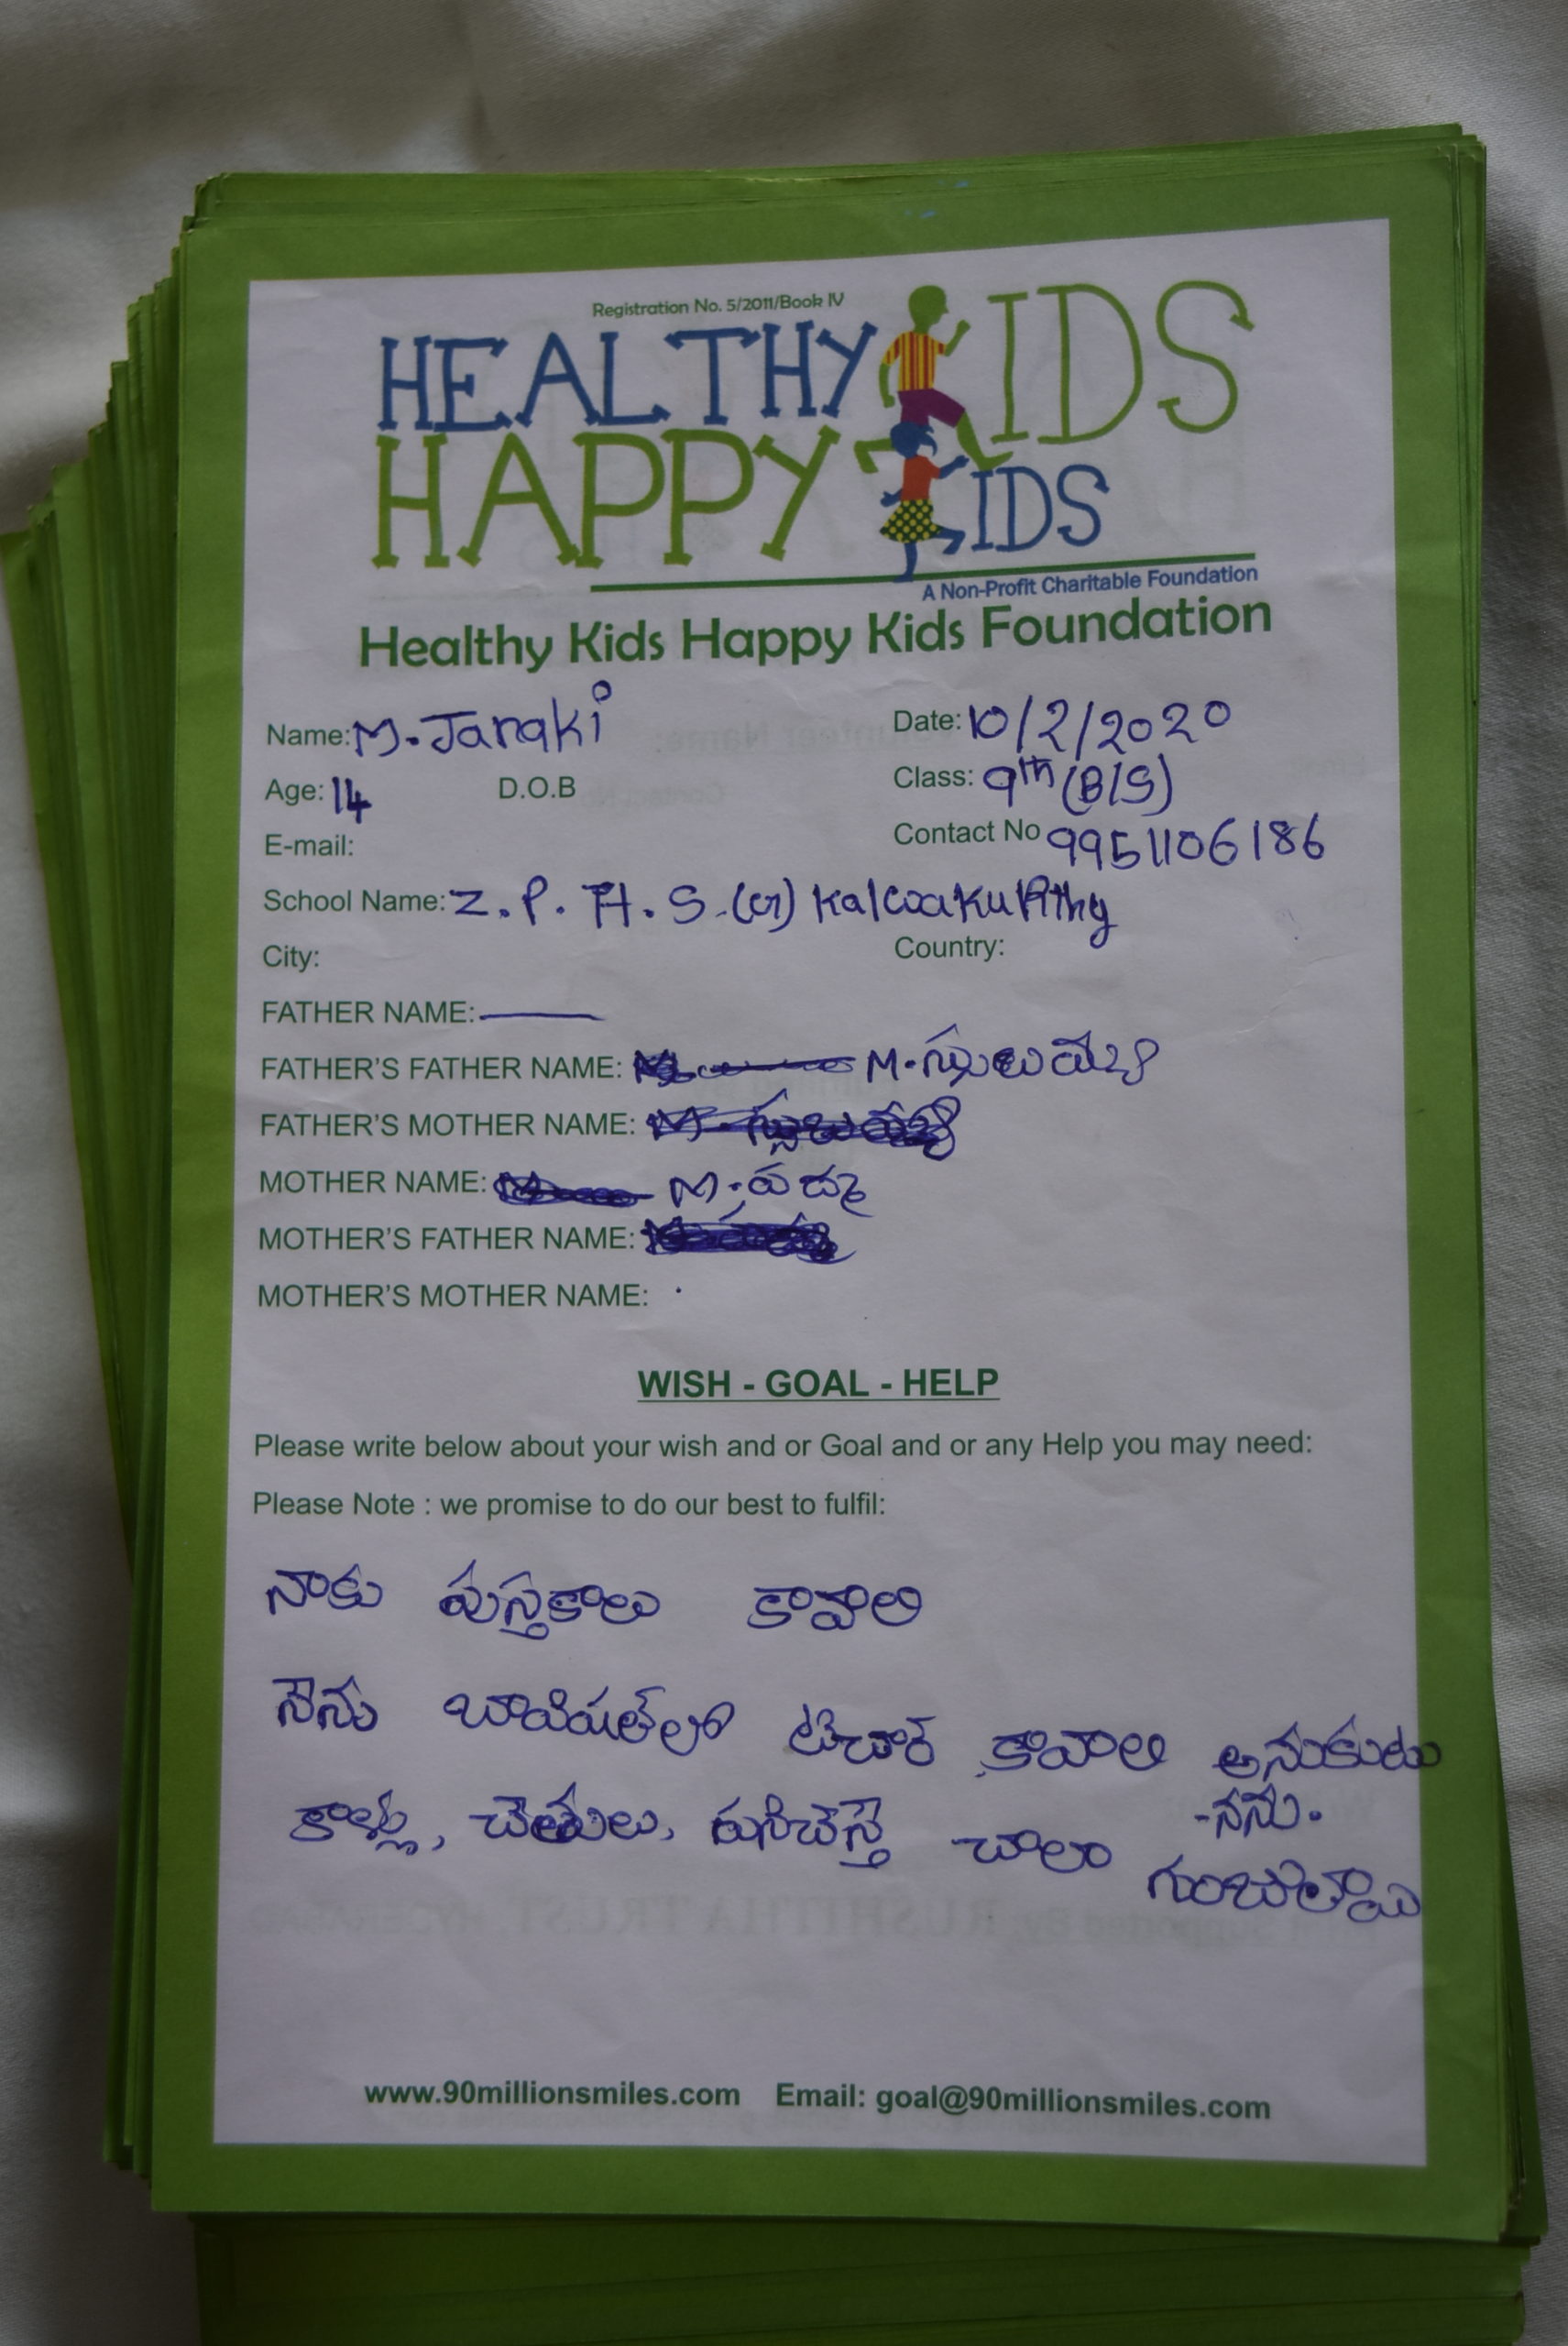 Registration No. 5/2011/Book IV
HEALTHY KIDS
HAPPY KIDS
A Non-Profit Charitable Foundation
Healthy Kids Happy Kids Foundation
Name: M. Janaki Date: 10/2/2020
Age: 14 D.O.B Class: 9th (B/S)
E-mail: Contact No 9951106186
School Name: Z.P.H.S.(G) Kalwakurthy
City: Country:
FATHER NAME: —
FATHER'S FATHER NAME: M.
FATHER'S MOTHER NAME:
MOTHER NAME: M. పద్మ
MOTHER'S FATHER NAME:
MOTHER'S MOTHER NAME:
WISH - GOAL - HELP
Please write below about your wish and or Goal and or any Help you may need:
Please Note : we promise to do our best to fulfil:
నాకు పుస్తకాలు కావాలి
నెను టీచార్ కావాలి అనుకుటు
-నను.
కాళ్లు, చెతులు, చాలా
www.90millionsmiles.com Email: goal@90millionsmiles.com